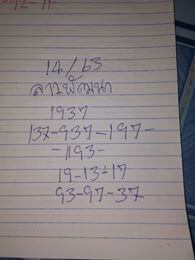 14/63
ลาวพัฒนา
1937
137-937-197-
-193-
19-13-17
93-97-37